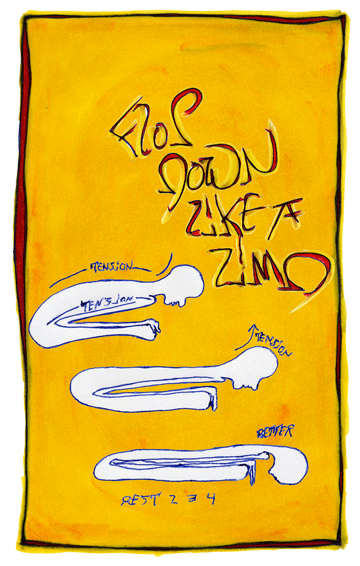 FLOP
DOWN
LIKE A
TENSION
TENSION
TENSION
BETTER
REST 2 3 4